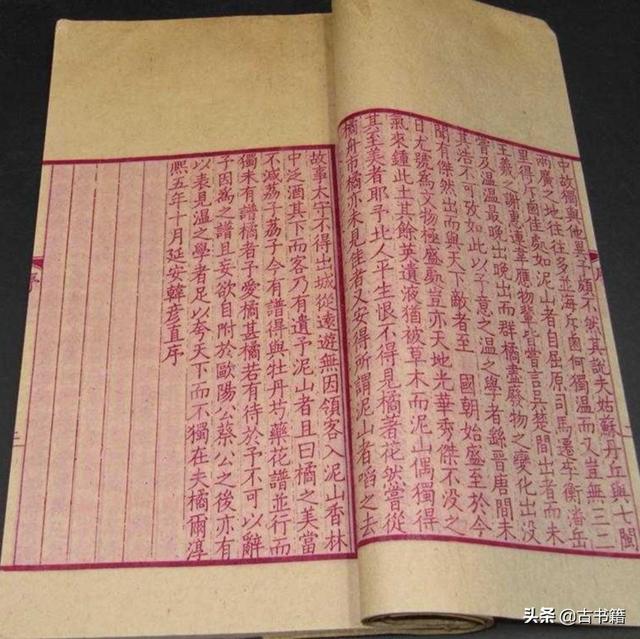 中故獨與他異予頗不然其說夫姑蘇丹丘與七閩
兩廣之地往往多並海斥鹵何獨溫而又豈無三二
里得斥鹵佳處如泥山者自屈原司馬遷李衡潘岳
王羲之謝惠連韋應物輩皆嘗言吳楚間出者而未
嘗及溫溫最晚出晚出而群橘盡廢物之變化出沒
其浩不可攷如此以予意之溫之學者繇晉唐間未
聞有傑然出而與天下敵者至 國朝始盛至於今
日尤號爲文物極盛處豈亦天地光華秀傑不沒之
氣來鍾此土其餘英遺液猶被草木而泥山偶獨得
其至美者耶予北人平生恨不得見橘著花然嘗從
橘舟市橘亦未見佳者又安得所謂泥山者啗之去
故事太守不得出城從遠遊無因領客入泥山香林
中泛酒其下而客乃有遺予泥山者且曰橘之美當
不減荔子荔子今有譜得與牡丹芍藥花譜並行而
獨未有譜橘者子愛橘甚橘若有待於子不可以辭
予因爲之譜且妄欲自附於歐陽公蔡公之後亦有
以表見溫之學者足以夸天下而不獨在夫橘爾淳
熙五年十月延安韓彥直序
序
头条 @古书籍